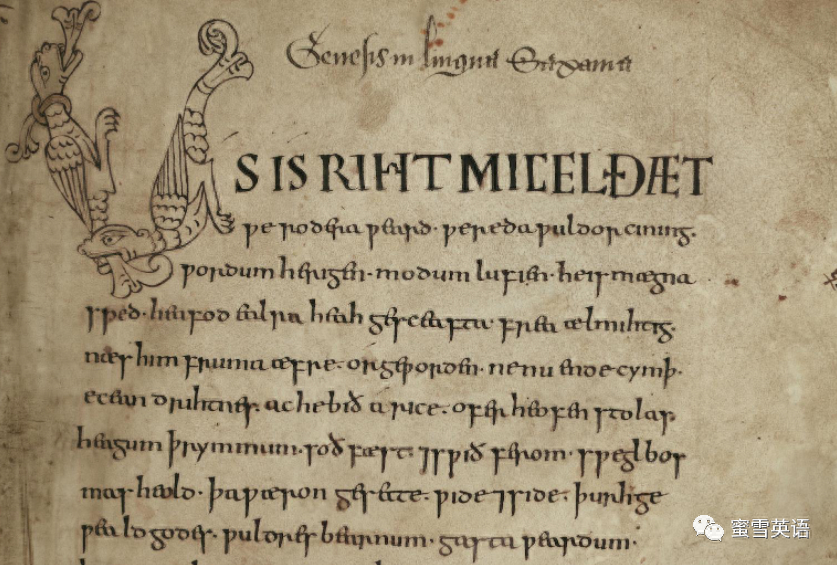 Genesis in lingua Saxania
US IS RIHT MICEL ÐÆT
ƿe rodera ƿeard· ƿereda ƿuldor cining·
ƿordum herigen· modum lufien· he is mægna
sped· heafod ealra heah gesceafta· frea ælmihtig·
næs him fruma æfre· or geƿorden· ne nu ende cymþ·
ecean drihtnes· ac he bið a rice· ofer heofen stolas·
heagum þrymmum· soð fæst· ⁊ sƿið ferom· sƿegl bos
mas heold· þa ƿæron gesette· ƿide ⁊ side· þurh ge
ƿeald godes· ƿuldres bearnum· gasta ƿeardum·
蜜雪英语